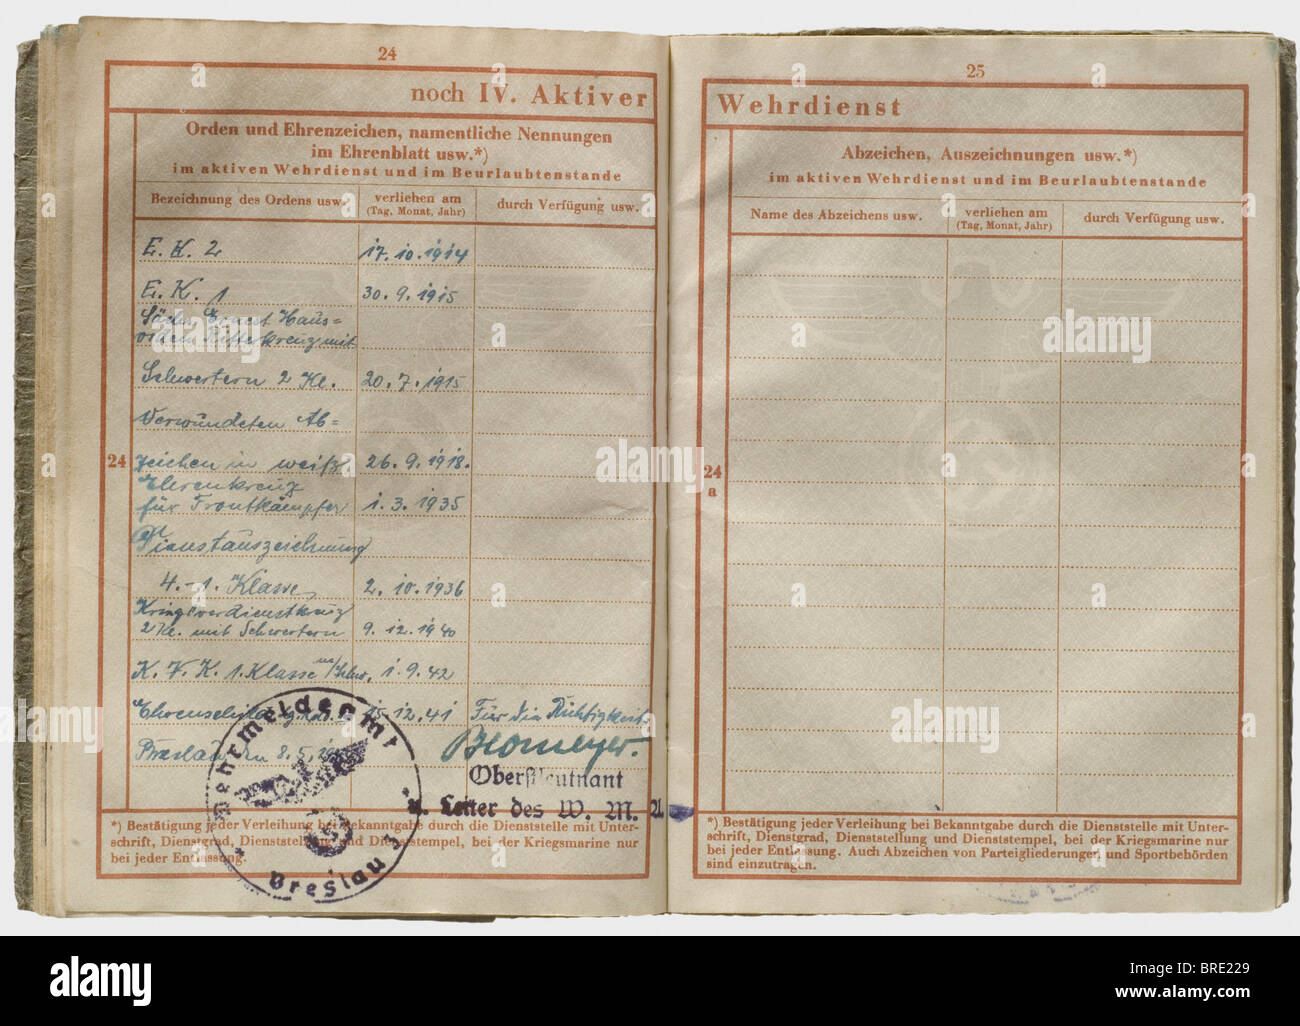 24
noch IV. Aktiver
Orden und Ehrenzeichen, namentliche Nennungen
im Ehrenblatt usw.*)
im aktiven Wehrdienst und im Beurlaubtenstande
Bezeichnung des Ordens usw.
verliehen am
(Tag, Monat, Jahr)
durch Verfügung usw.
E. K. 2 17.10.1914
E. K. 1 30.9.1915
Ernest Haus=
orden Ritterkreuz mit
Schwertern 2 Kl. 20.7.1915
Verwundeten Ab=
24
zeichen in weiß 26.9.1918.
Ehrenkreuz
für Frontkämpfer 1.3.1935
Dienstauszeichnung
4.-1. Klasse 2.10.1936
Kriegsverdienstkreuz
2 Kl. mit Schwertern 9.12.1940
K. V. K. 1. Klasse 1.9.42
15.12.41 Für die Richtigkeit
Breslau, den 8.5.
Blomeyer.
Oberstleutnant
u. Leiter des W. M. A.
Wehrmeldeamt
Breslau
*) Bestätigung jeder Verleihung bei Bekanntgabe durch die Dienststelle mit Unter-
schrift, Dienstgrad, Dienststellung und Dienststempel, bei der Kriegsmarine nur
bei jeder Entlassung.
25
Wehrdienst
Abzeichen, Auszeichnungen usw.*)
im aktiven Wehrdienst und im Beurlaubtenstande
Name des Abzeichens usw.
verliehen am
(Tag, Monat, Jahr)
durch Verfügung usw.
24
a
*) Bestätigung jeder Verleihung bei Bekanntgabe durch die Dienststelle mit Unter-
schrift, Dienstgrad, Dienststellung und Dienststempel, bei der Kriegsmarine nur
bei jeder Entlassung. Auch Abzeichen von Parteigliederungen und Sportbehörden
sind einzutragen.
alamy
Image ID: BRE229
www.alamy.com